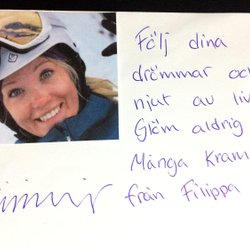 Följ dina
drömmar och
njut av liv
Glöm aldrig
Många Kram
från Filippa